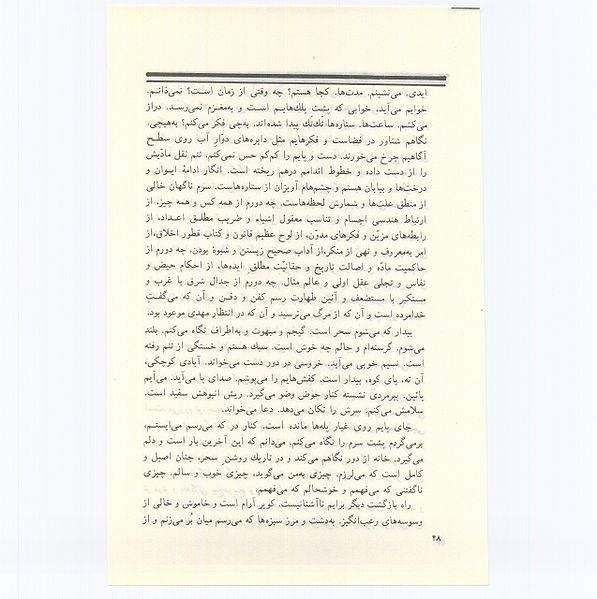 ابدی. می‌نشینم. مدت‌ها. کجا هستم؟ چه وقتی از زمان است؟ نمی‌دانم.
خوابم می‌آید. خوابی که پشت پلك‌هایم است و به‌مغزم نمی‌رسد. دراز
می‌کشم. ساعت‌ها. ستاره‌ها تك‌تك پیدا شده‌اند. به‌چی فکر می‌کنم؟ به‌هیچی.
نگاهم شناور در فضاست و فکرهایم مثل دایره‌های دوّار آب روی سطح
آگاهیم چرخ می‌خورند. دست و پایم را کم‌کم حس نمی‌کنم. تنم ثقل مادّیش
را از دست داده و خطوط اندامم درهم ریخته است. انگار ادامهٔ ایوان و
درخت‌ها و بیابان هستم و چشم‌هام آویزان از ستاره‌هاست. سرم ناگهان خالی
از منطق علت‌ها و شمارش لحظه‌هاست. چه دورم از همه کس و همه چیز، از
ارتباط هندسی اجسام و تناسب معقول اشیاء و ضریب مطلـق اعـداد، از
رابطه‌های مزیّن و فکرهای مدوّن، از لوح عظیم قانون و کتاب قطور اخلاق، از
امر به‌معروف و نهی از منکر، از آداب صحیح زیستن و شیوهٔ بودن. چه دورم از
حاکمیت مادّه و اصالت تاریخ و حقانیّت مطلق ایده‌ها، از احکام حیض و
نفاس و تجلی عقل اولی و عالم مثال. چه دورم از جدال شرق با غرب و
مستکبر با مستضعف و آئین طهارت رسم کفن و دفـن و آن که می‌گفت
خدامرده است و آن که از مرگ می‌ترسید و آن که در انتظار مهدی موعود بود.
بیدار که می‌شوم سحر است. گیجم و مبهوت و به‌اطراف نگاه می‌کنم. بلند
می‌شوم. گرسنه‌ام و حالم چه خوش است. سبك هستم و خستگی از تنم رفته
است. نسیم خوبی می‌آید. خروسی در دور دست می‌خواند. آبادی کوچکی،
آن ته، پای کوه، بیدار است. کفش‌هایم را می‌پوشم. صدای پا می‌آید. می‌آیم
پائین. پیرمردی نشسته کنار حوض وضو می‌گیرد. ریش انبوهش سفید است.
سلامش می‌کنم. سرش را تکان می‌دهد. دعا می‌خواند.
جای پایم روی غبار پله‌ها مانده است. کنار در که می‌رسم می‌ایستـم،
برمی‌گردم پشت سرم را نگاه می‌کنم. می‌دانم که این آخرین بار است و دلم
می‌گیرد. خانه از دور نگاهم می‌کند و در تاریك روشن سحر، چنان اصیل و
کامل است که می‌لرزم. چیزی به‌من می‌گوید، چیزی خوب و سالم. چیزی
ناگفتنی که می‌فهمم و خوشحالم که می‌فهمم.
راه بازگشت دیگر برایم ناآشنانیست. کویر آرام است و خاموش و خالی از
وسوسه‌های رعب‌انگیز. به‌دشت و مرز سبزه‌ها که می‌رسم میان بُر می‌زنم و از
۲۸